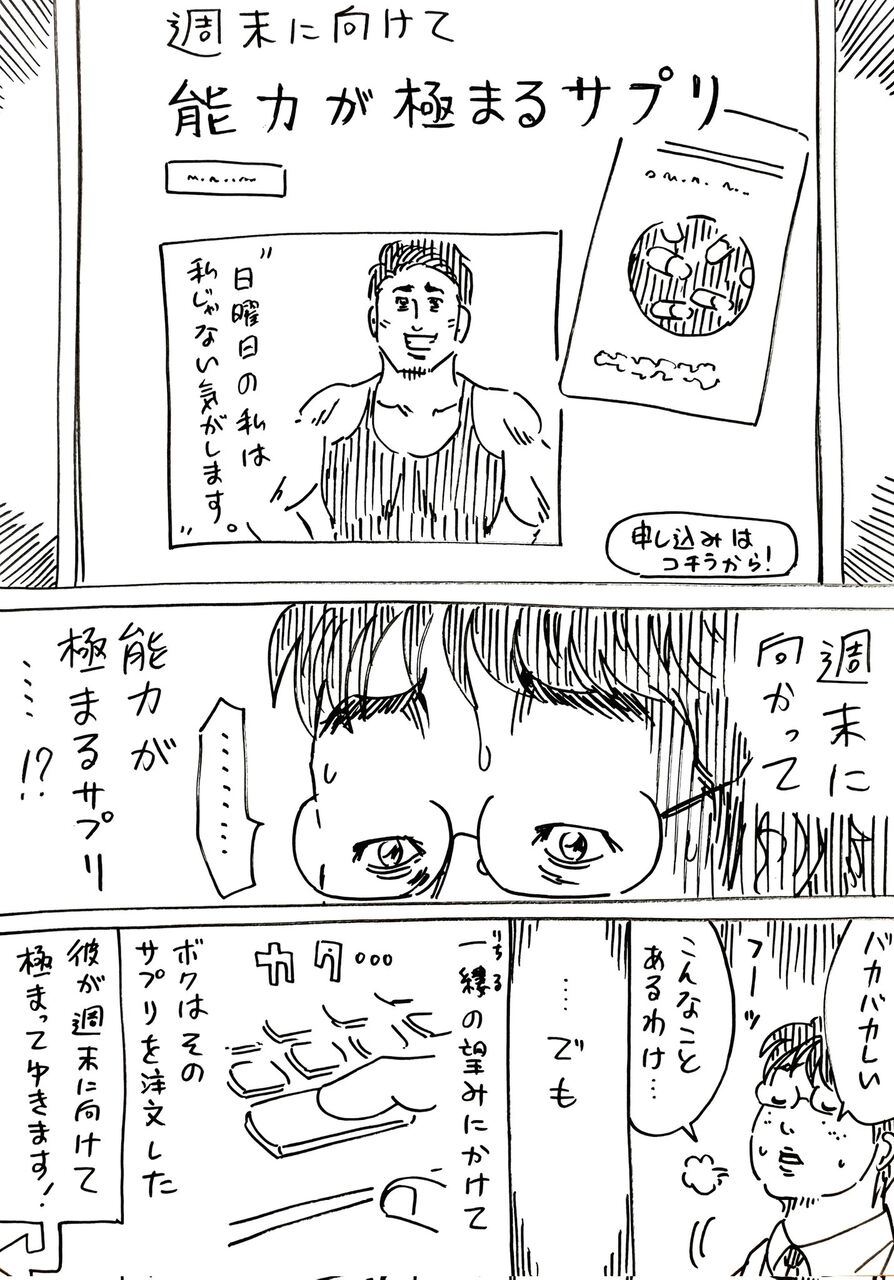 週末に向けて
能力が極まるサプリ
"日曜日の私は
私じゃない気がします。"
申し込みは
コチラから!
週末に
向かって
能力が
極まるサプリ
……!?
………
バカバカしい
フーッ
こんなこと
あるわけ…
…でも
一縷の望みにかけて
いちる
カタ…
ボクはその
サプリを注文した
彼が週末に向けて
極まってゆきます!